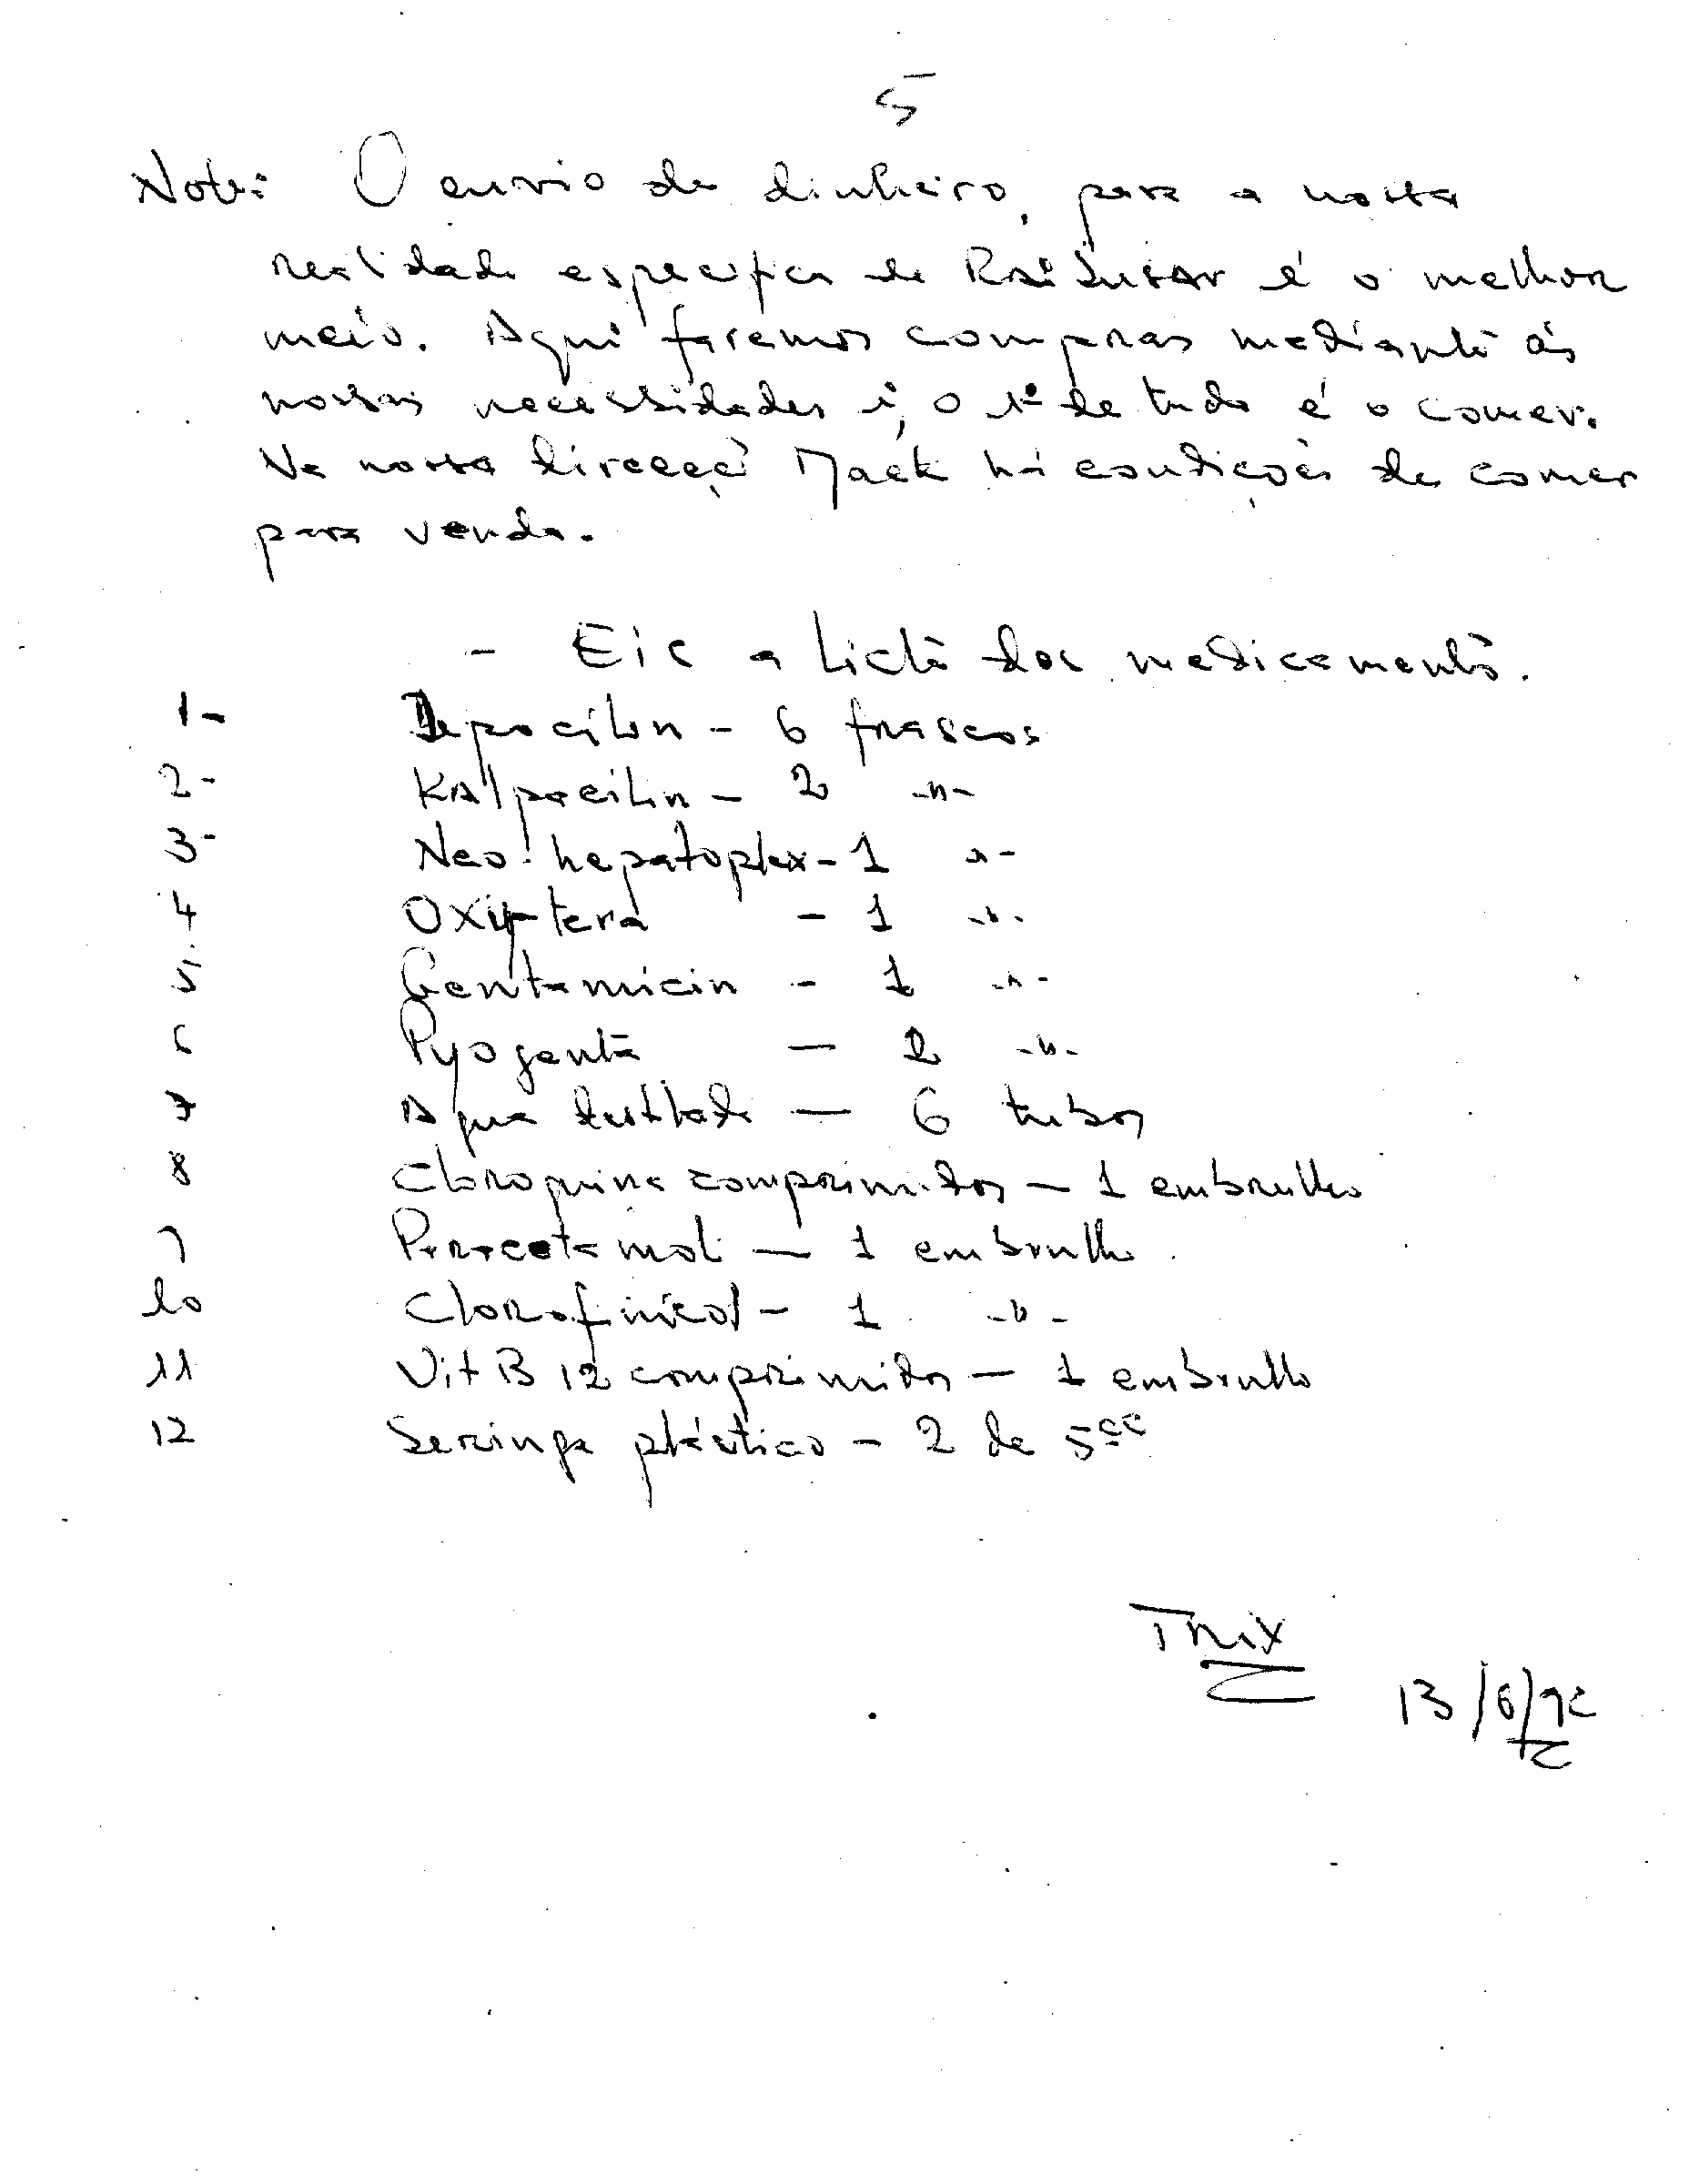 5
Nota: O envio de dinheiro, para a nossa
realidade especifica de Raisutar é o melhor
meio. Aqui faremos compras mediante ás
nossas necessidades e, o 1º de tudo é o comer.
Na nossa direcçã Maek há condições de comer
para venda.
- Eis a Lista dos medicamentos.
1- Depocilin - 6 frascos
2- Kalpacilin - 2 -"-
3- Neo-hepatoplex - 1 "-
4 Oxy-tera - 1 -"-
5 Gentamicin - 1 -"-
6 Pyogenta - 2 -"-
7 Agua destilada - 6 tubos
8 Cloroquina comprimidos - 1 embrulho
9 Paracetamol - 1 embrulho
10 Clorofinicol - 1 -"-
11 Vit B 12 comprimidos - 1 embrulho
12 Seringa plástico - 2 de 5cc
Trix
13/6/92